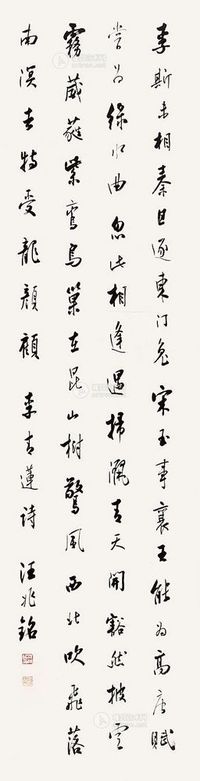 李斯未相秦且逐東門兔宋玉事襄王能為高唐賦
嘗聞綠水曲忽此相逢遇掃灑青天開豁然披雲
霧葳蕤紫鸞鳥巢在昆山樹驚風西北吹飛落
南溟去特受龍顏顧 李青蓮詩 汪兆銘